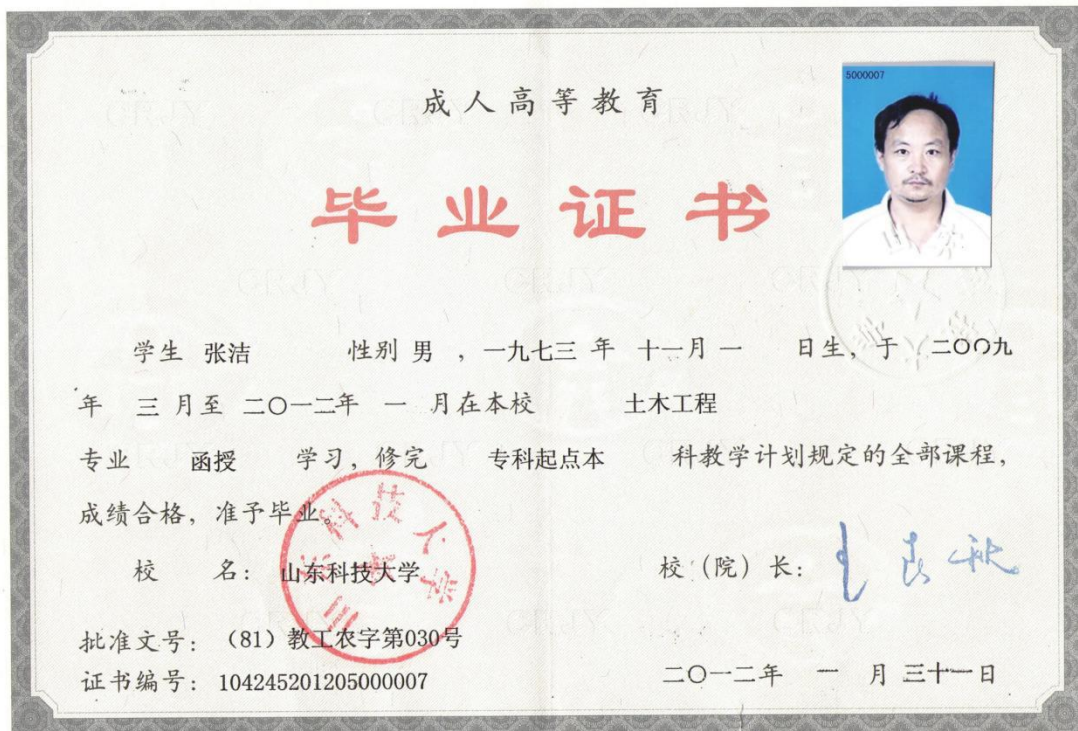 5000007
成人高等教育
毕业证书
学生 张洁 性别 男 ，一九七三 年 十一月 一 日生，于 二〇〇九
年 三 月至 二〇一二年 一 月在本校 土木工程
专业 函授 学习，修完 专科起点本 科教学计划规定的全部课程，
成绩合格，准予毕业。
校 名：山东科技大学 校（院）长：
山东科技大学
批准文号：（81）教工农字第030号
证书编号：104245201205000007 二〇一二年 一 月 三十一日